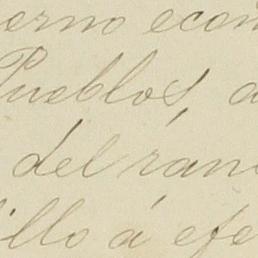 erno econ
Pueblos, a
del ran
illo á efe